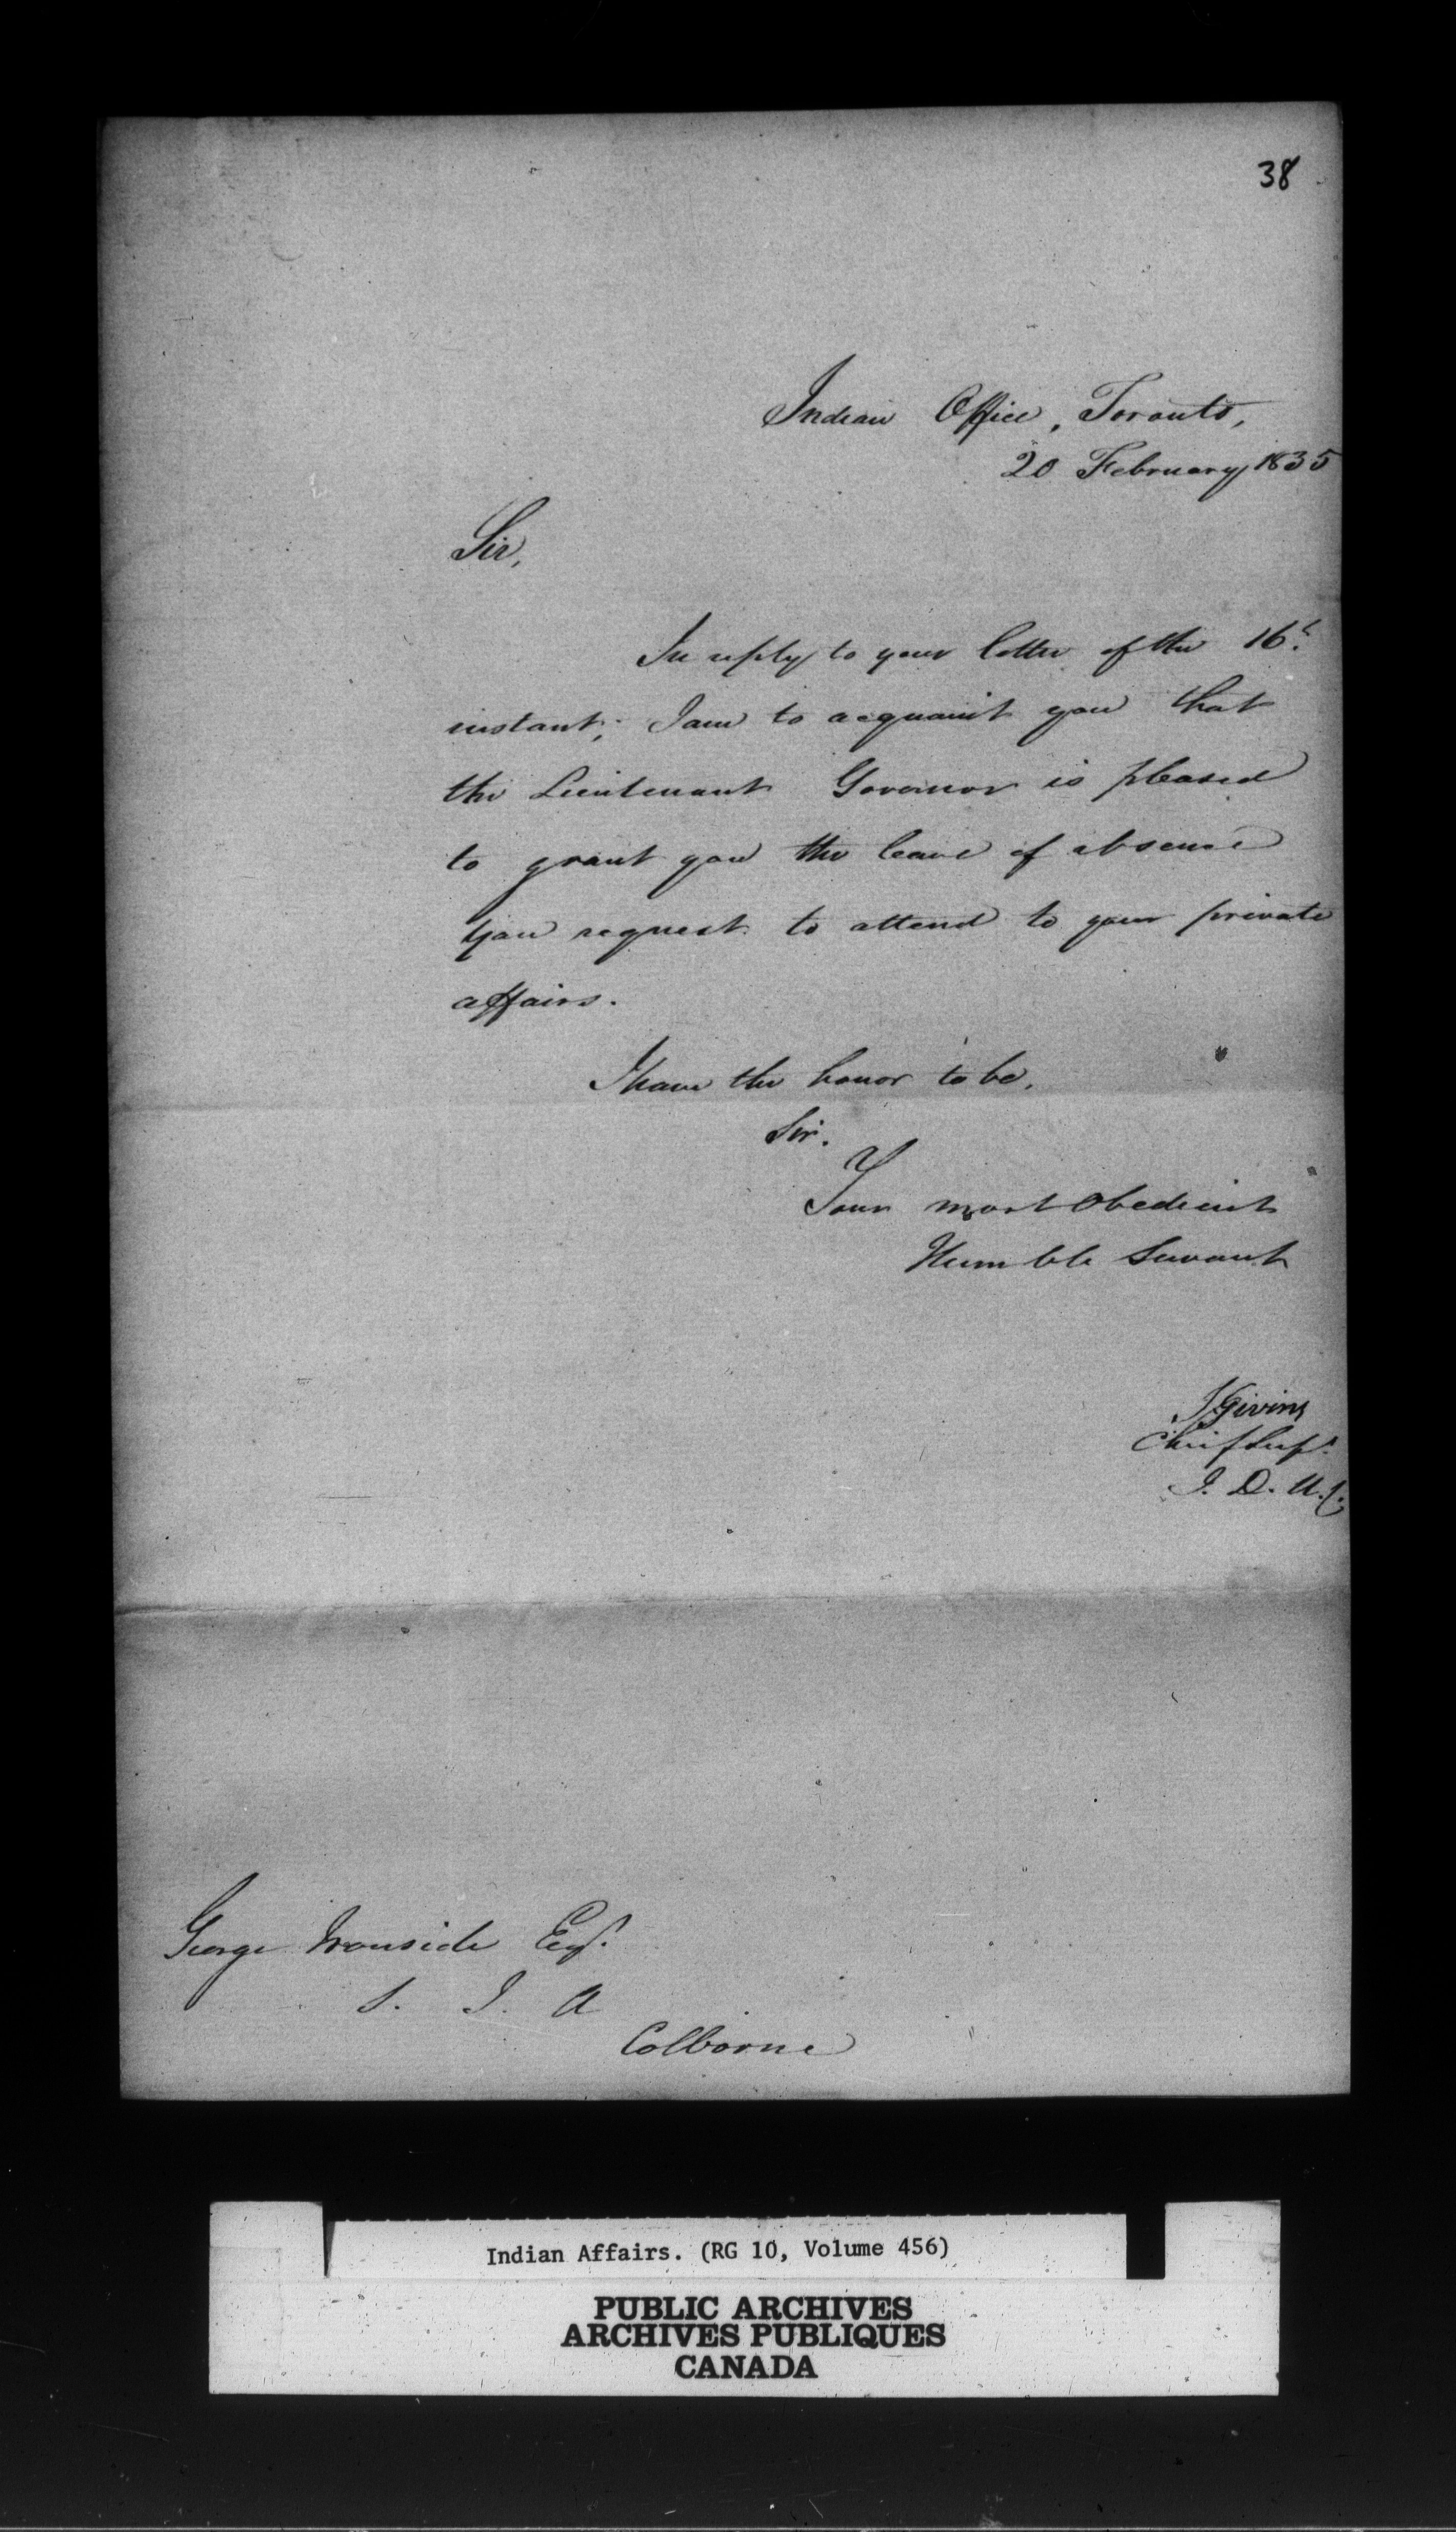 38
Indian Office, Toronto,
20 February 1835
Sir,
In reply to your letter of the 16t.
instant; I am to acquaint you that
the Lieutenant Governor is pleased
to grant you the leave of absence
you request to attend to your private
affairs.
I have the honor to be,
Sir.
Your most obedient
Humble Servant
J Givins
Chief Supt.
I. D. U.C.
George Ironside Esqr.
S. I. A
Colborne
Indian Affairs. (RG 10, Volume 456)
PUBLIC ARCHIVES
ARCHIVES PUBLIQUES
CANADA